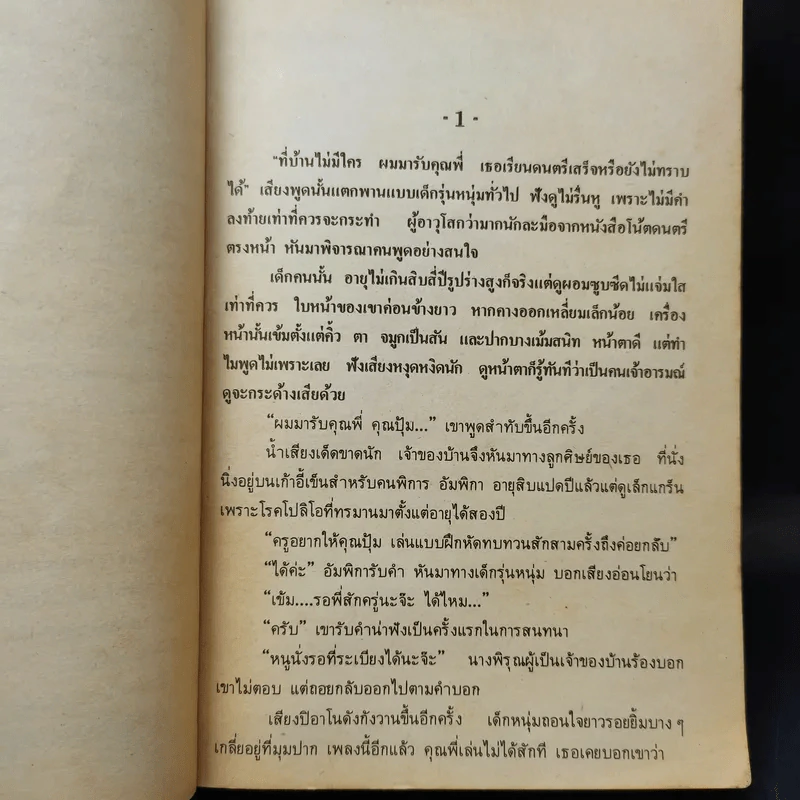 - 1 -
"ที่บ้านไม่มีใคร ผมมารับคุณพี่ เธอเรียนดนตรีเสร็จหรือยังไม่ทราบ
ได้" เสียงพูดนั้นแตกพานแบบเด็กรุ่นหนุ่มทั่วไป ฟังดูไม่รื่นหู เพราะไม่มีคำ
ลงท้ายเท่าที่ควรจะกระทำ ผู้อาวุโสกว่ามากนักละมือจากหนังสือโน้ตดนตรี
ตรงหน้า หันมาพิจารณาคนพูดอย่างสนใจ
เด็กคนนั้น อายุไม่เกินสิบสี่ปีรูปร่างสูงก็จริงแต่ดูผอมซูบซีดไม่แจ่มใส
เท่าที่ควร ใบหน้าของเขาค่อนข้างยาว หากคางออกเหลี่ยมเล็กน้อย เครื่อง
หน้านั้นเข้มตั้งแต่คิ้ว ตา จมูกเป็นสัน และปากบางเม้มสนิท หน้าตาดี แต่ทำ
ไมพูดไม่เพราะเลย ฟังเสียงหงุดหงิดนัก ดูหน้าตาก็รู้ทันทีว่าเป็นคนเจ้าอารมณ์
ดูจะกระด้างเสียด้วย
"ผมมารับคุณพี่ คุณปุ้ม..." เขาพูดสำทับขึ้นอีกครั้ง
น้ำเสียงเด็ดขาดนัก เจ้าของบ้านจึงหันมาทางลูกศิษย์ของเธอ ที่นั่ง
นิ่งอยู่บนเก้าอี้เข็นสำหรับคนพิการ อัมพิกา อายุสิบแปดปีแล้วแต่ดูเล็กแกร็น
เพราะโรคโปลิโอที่ทรมานมาตั้งแต่อายุได้สองปี
"ครูอยากให้คุณปุ้ม เล่นแบบฝึกหัดทบทวนสักสามครั้งถึงค่อยกลับ"
"ได้ค่ะ" อัมพิการับคำ หันมาทางเด็กรุ่นหนุ่ม บอกเสียงอ่อนโยนว่า
"เข้ม....รอพี่สักครู่นะจ๊ะ ได้ไหม..."
"ครับ" เขารับคำน่าฟังเป็นครั้งแรกในการสนทนา
"หนูนั่งรอที่ระเบียงได้นะจ๊ะ" นางพิรุณผู้เป็นเจ้าของบ้านร้องบอก
เขาไม่ตอบ แต่ถอยกลับออกไปตามคำบอก
เสียงปิอาโนดังกังวานขึ้นอีกครั้ง เด็กหนุ่มถอนใจยาวรอยยิ้มบาง ๆ
เกลี่ยอยู่ที่มุมปาก เพลงนี้อีกแล้ว คุณพี่เล่นไม่ได้สักที เธอเคยบอกเขาว่า